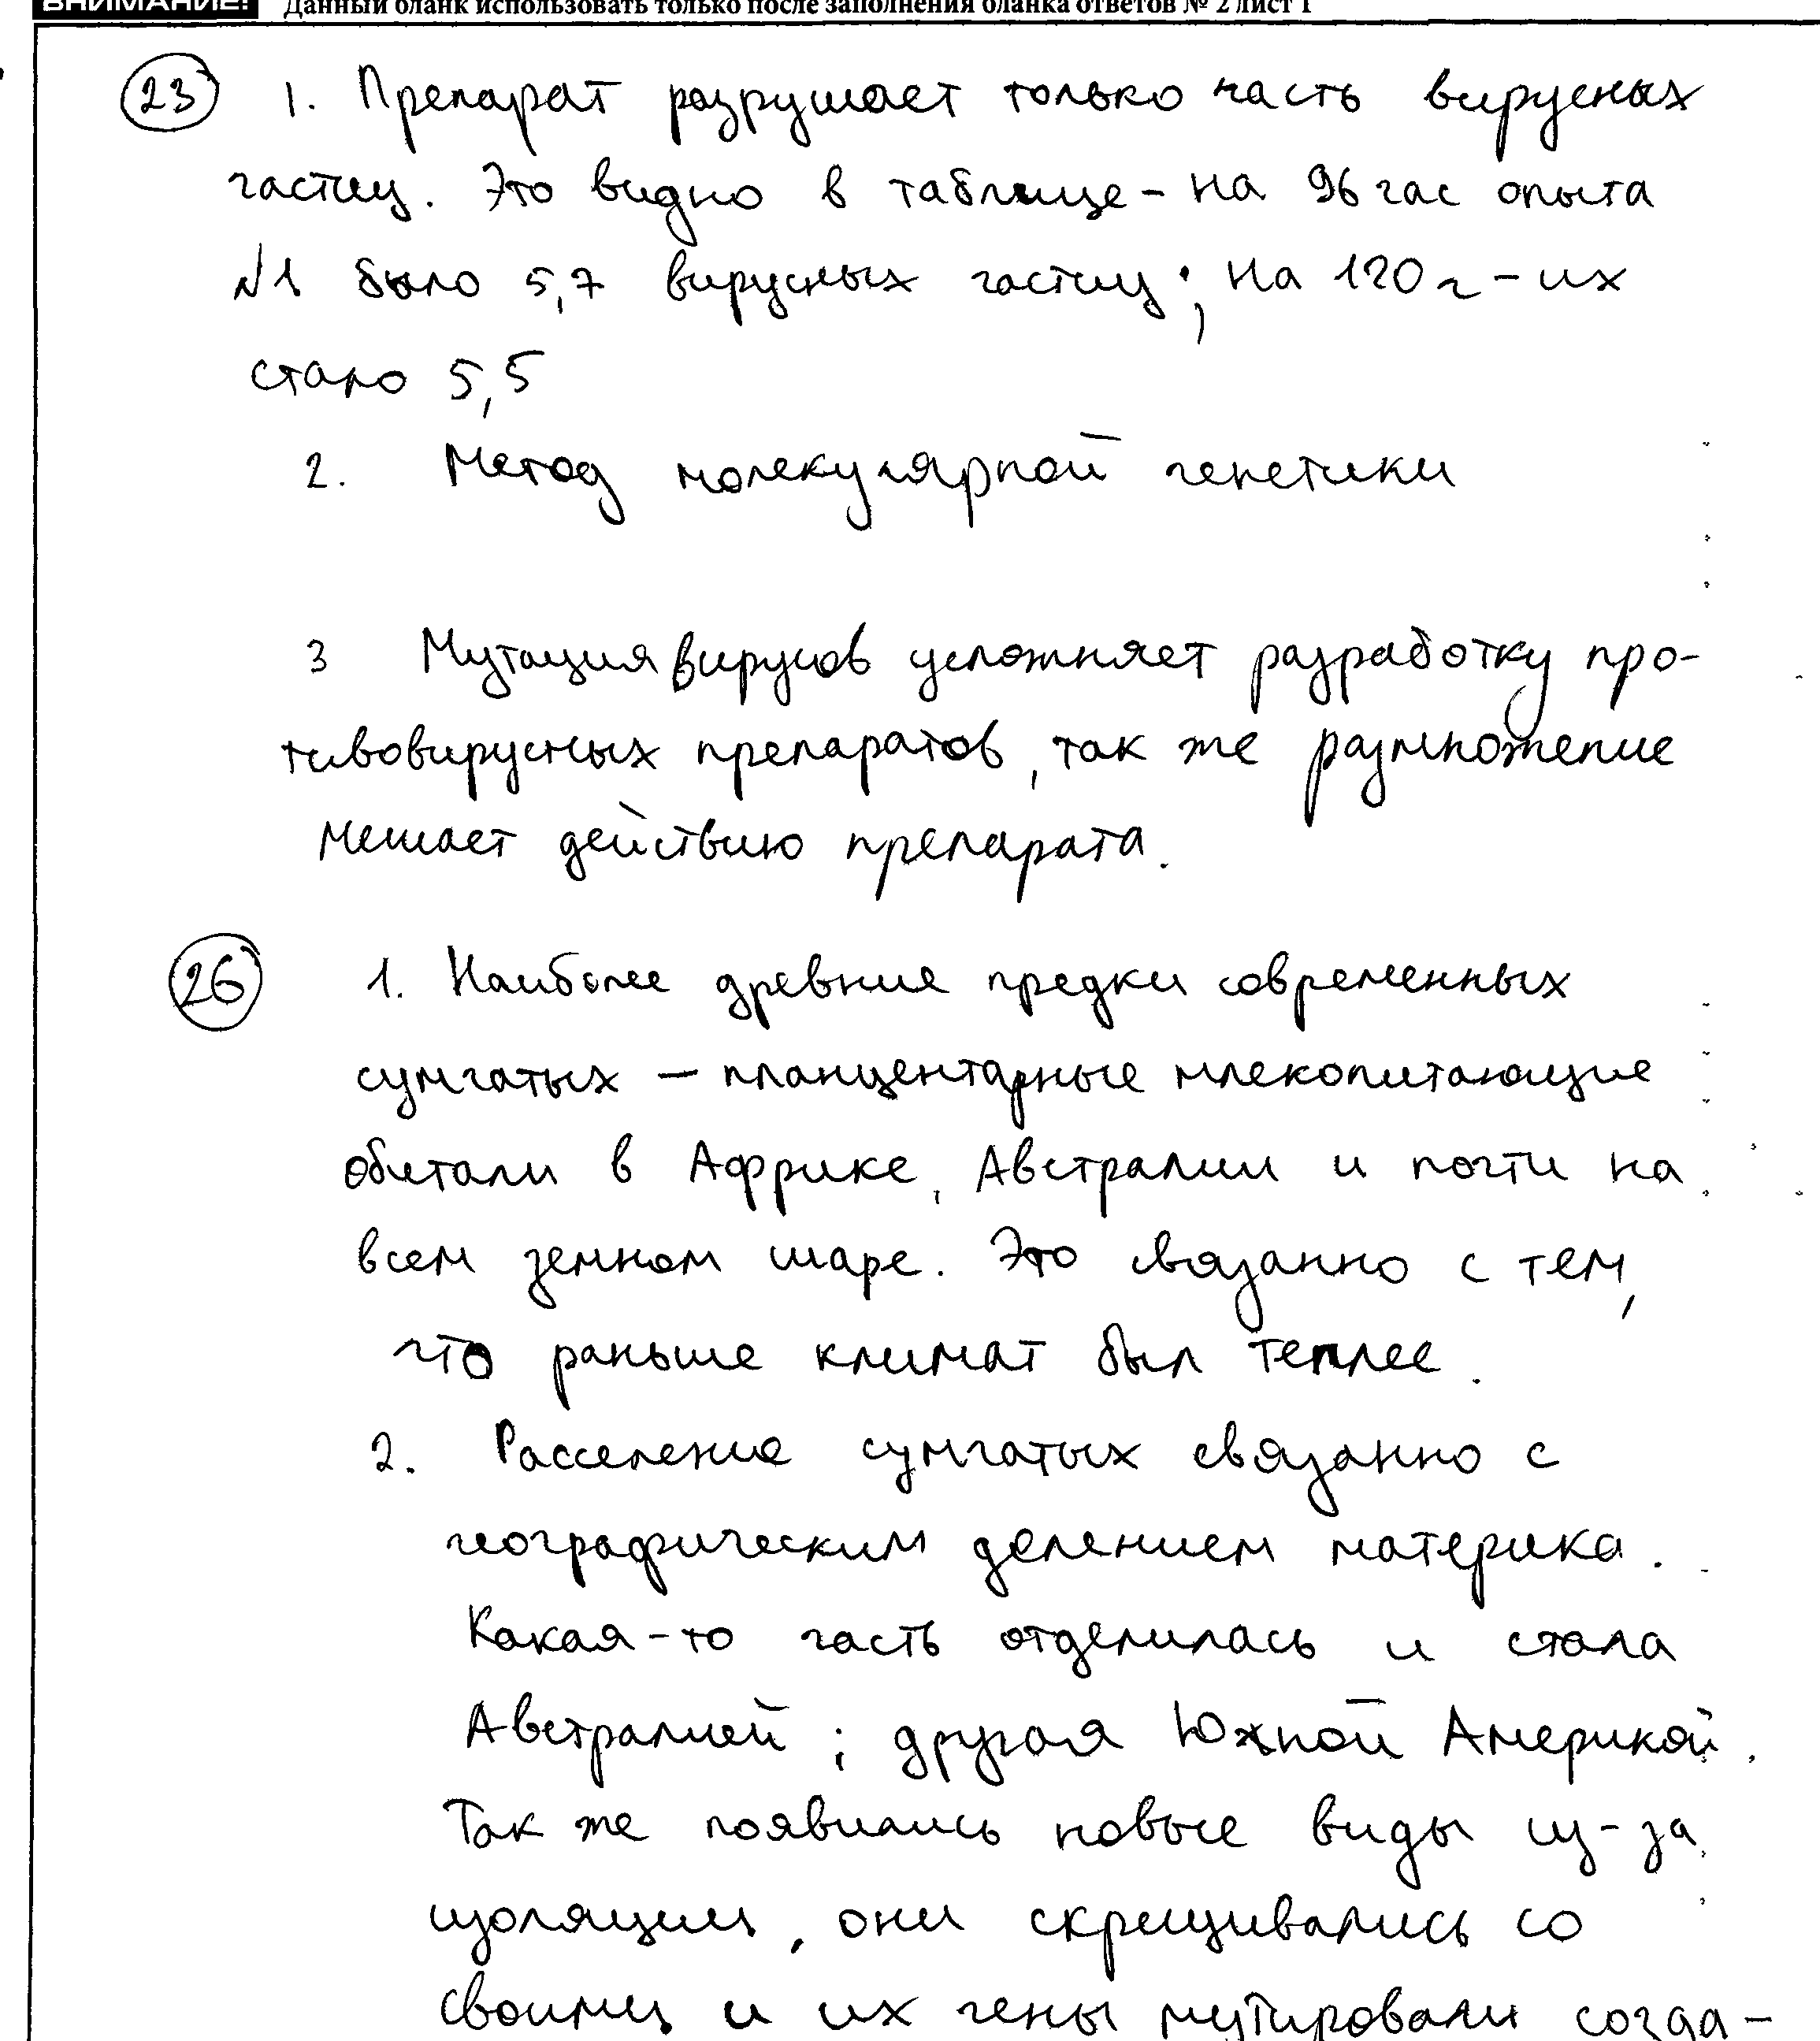 ВНИМАНИЕ! Данный бланк использовать только после заполнения бланка ответов № 2 лист 1
23 1. Препарат разрушает только часть вирусных
частиц. Это видно в таблице - на 96 час опыта
№1 было 5,7 вирусных частиц; на 120 ч - их
стало 5,5
2. Метод молекулярной генетики
3 Мутация вирусов усложняет разработку про-
тивовирусных препаратов, так же размножение
мешает действию препарата.
26 1. Наиболее древние предки современных
сумчатых — планцентарные млекопитающие
обитали в Африке, Австралии и почти на
всем земном шаре. Это связанно с тем,
что раньше климат был теплее.
2. Расселение сумчатых связанно с
географическим делением материка.
Какая-то часть отделилась и стала
Австралией; другая Южной Америкой.
Так же появились новые виды из-за
изоляции, они скрещивались со
своими и их гены мутировали созда-